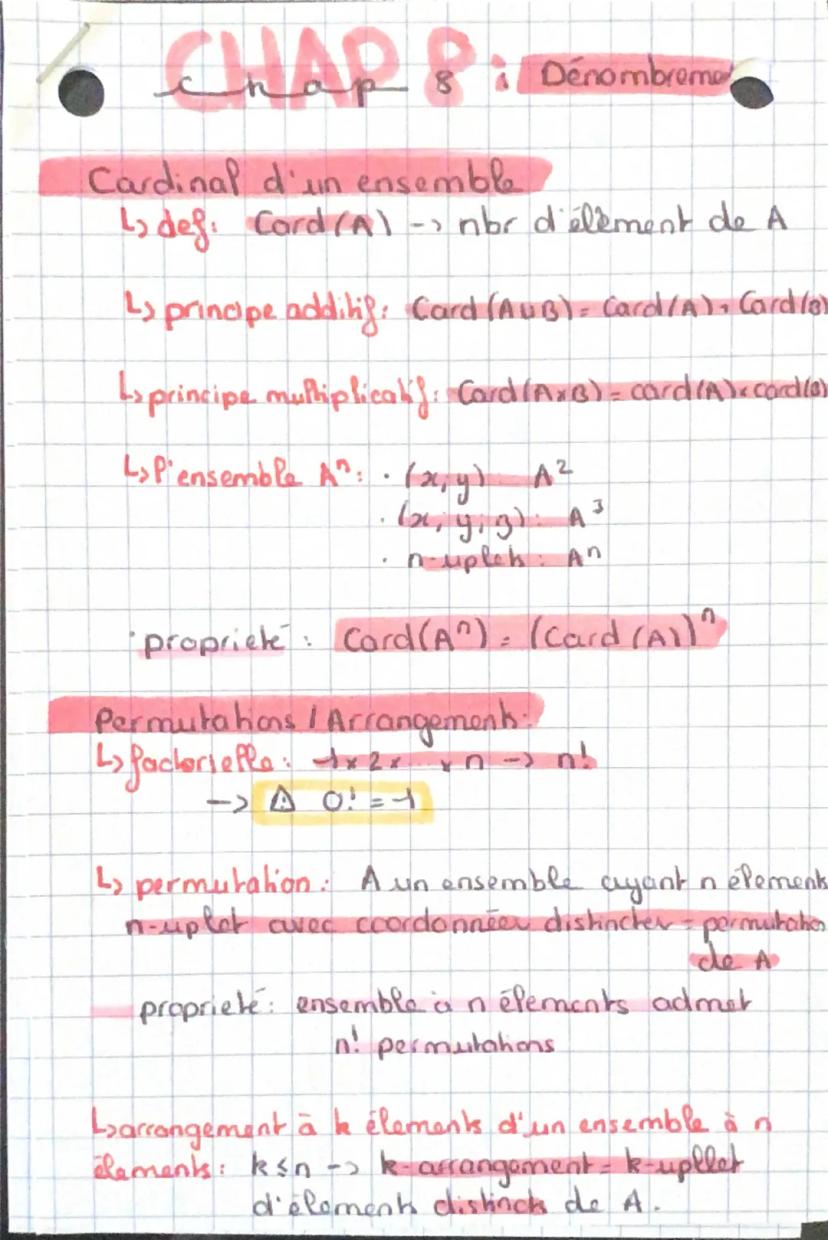 CHAP 8 : Dénombreme
Cardinal d'un ensemble
↳ def: Card(A) -> nbr d'élèment de A
↳ principe additif: Card(A∪B) = Card(A) + Card(B)
↳ principe multiplicatif: Card(A×B) = card(A)×card(B)
↳ l'ensemble Aⁿ: · (x, y) A²
· (x, y, z) : A³
· n-uplets : Aⁿ
· proprieté : Card(Aⁿ) = (Card(A))ⁿ
Permutations / Arrangement:
↳ factorielle : 1 × 2 × ... × n -> n!
-> ⚠ 0! = 1
↳ permutation : A un ensemble ayant n élements
n-uplet avec coordonnées distinctes = permutatio
de A
proprieté : ensemble à n élements admet
n! permutations
↳ arrangement à k élements d'un ensemble à n
élements : k ≤ n -> k-arrangement = k-upllet
d'élements distincts de A.